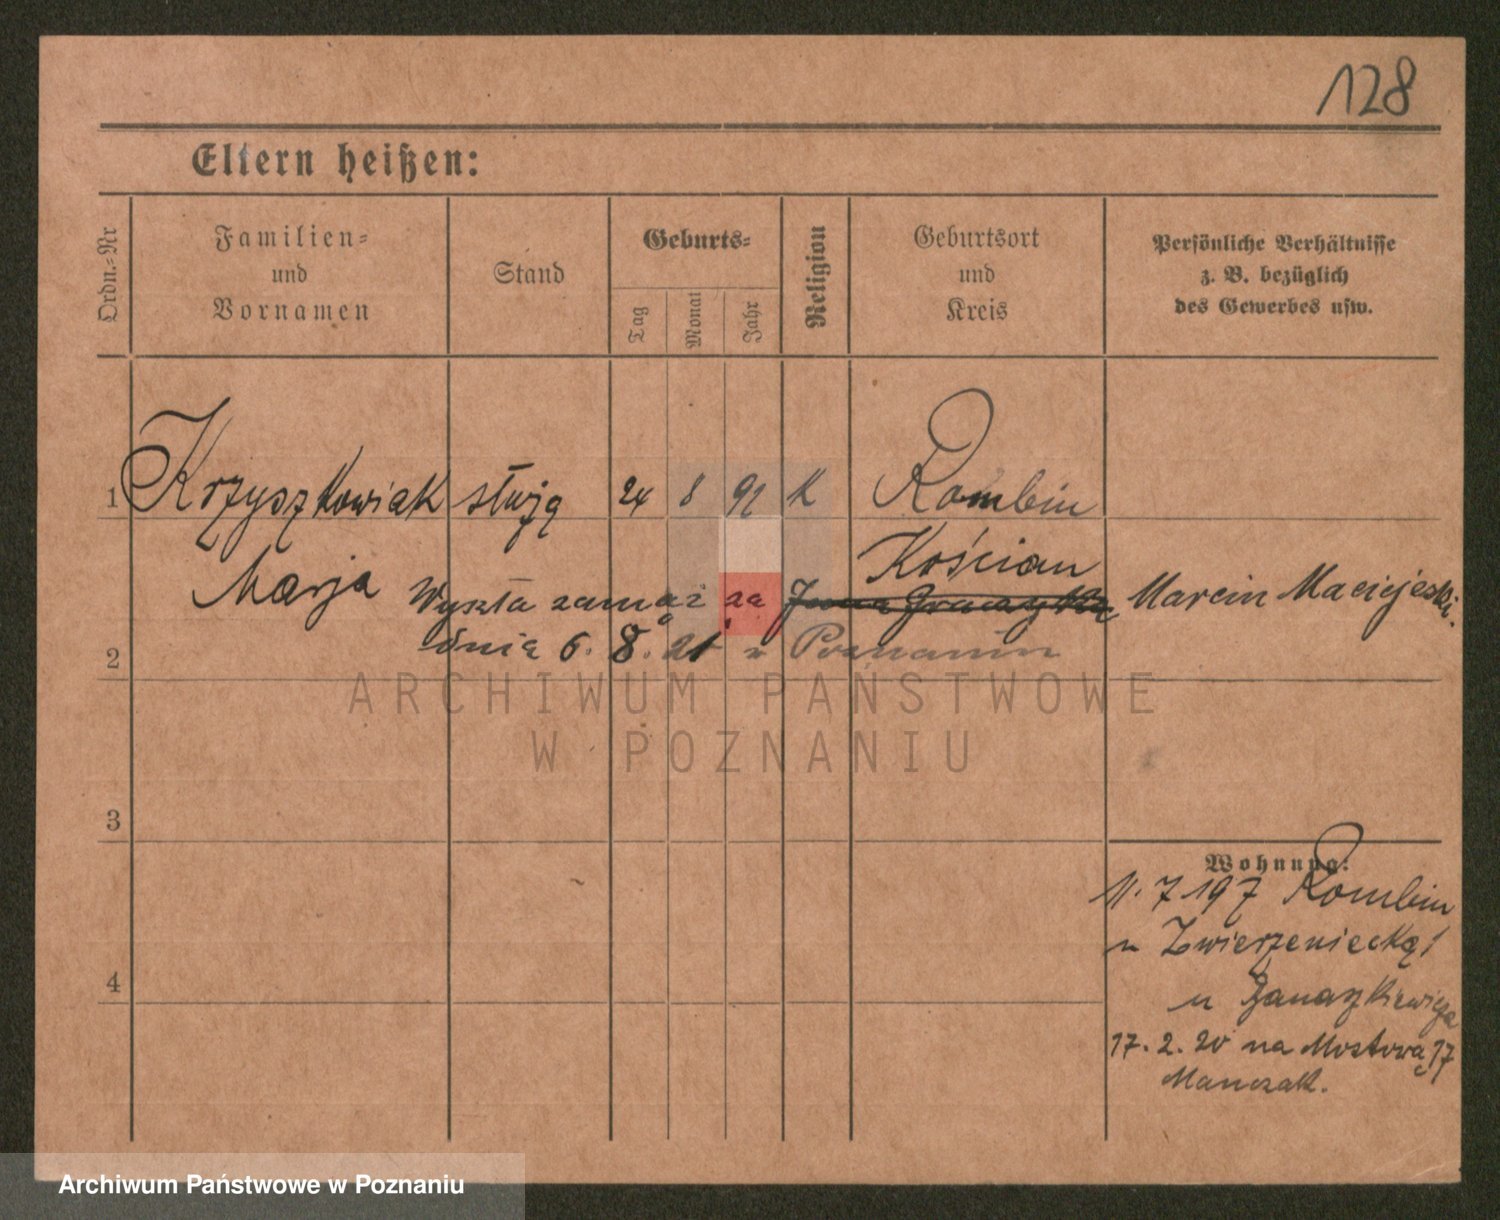 128
Eltern heißen:
Ordn.-Nr
Familien-
und
Vornamen
Stand
Geburts-
Tag
Monat
Jahr
Religion
Geburtsort
und
Kreis
Persönliche Verhältnisse
z. B. bezüglich
des Gewerbes usw.
1 Krzyszkowiak służą 24 8 92 K Rombin
Kościan
Marja Wyszła zamąż za Marcin Maciejeski.
dnia 6. 8. 21 w Poznaniu
2
ARCHIWUM PAŃSTWOWE
W POZNANIU
3
Wohnung:
11. 7 197 Rombin
n Zwierzeniecką 1
u
4
17. 2. 20 na Mostową 17
Manczak.
Archiwum Państwowe w Poznaniu